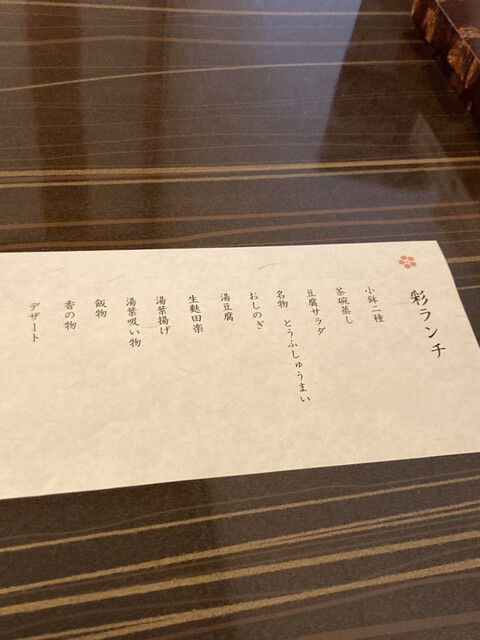 彩ランチ
小鉢二種
茶碗蒸し
豆腐サラダ
名物 とうふしゅうまい
おしのぎ
湯豆腐
生麩田楽
湯葉揚げ
湯葉吸い物
飯物
香の物
デザート